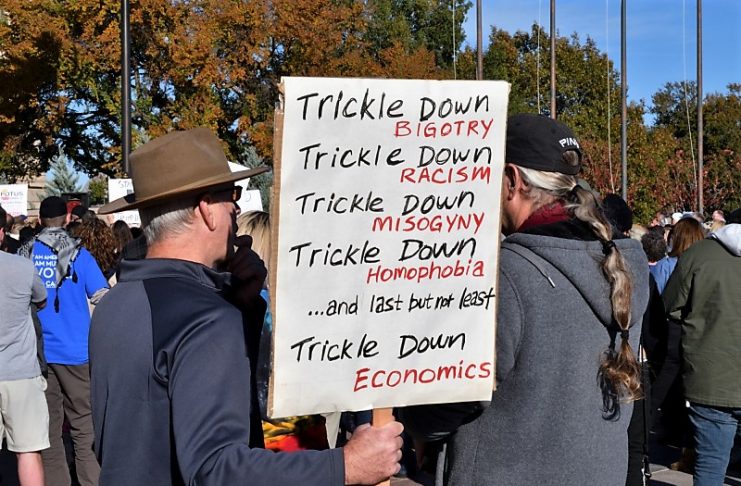 Trickle Down
BIGOTRY
Trickle Down
RACISM
Trickle Down
MISOGYNY
Trickle Down
Homophobia
...and last but not least
Trickle Down
Economics